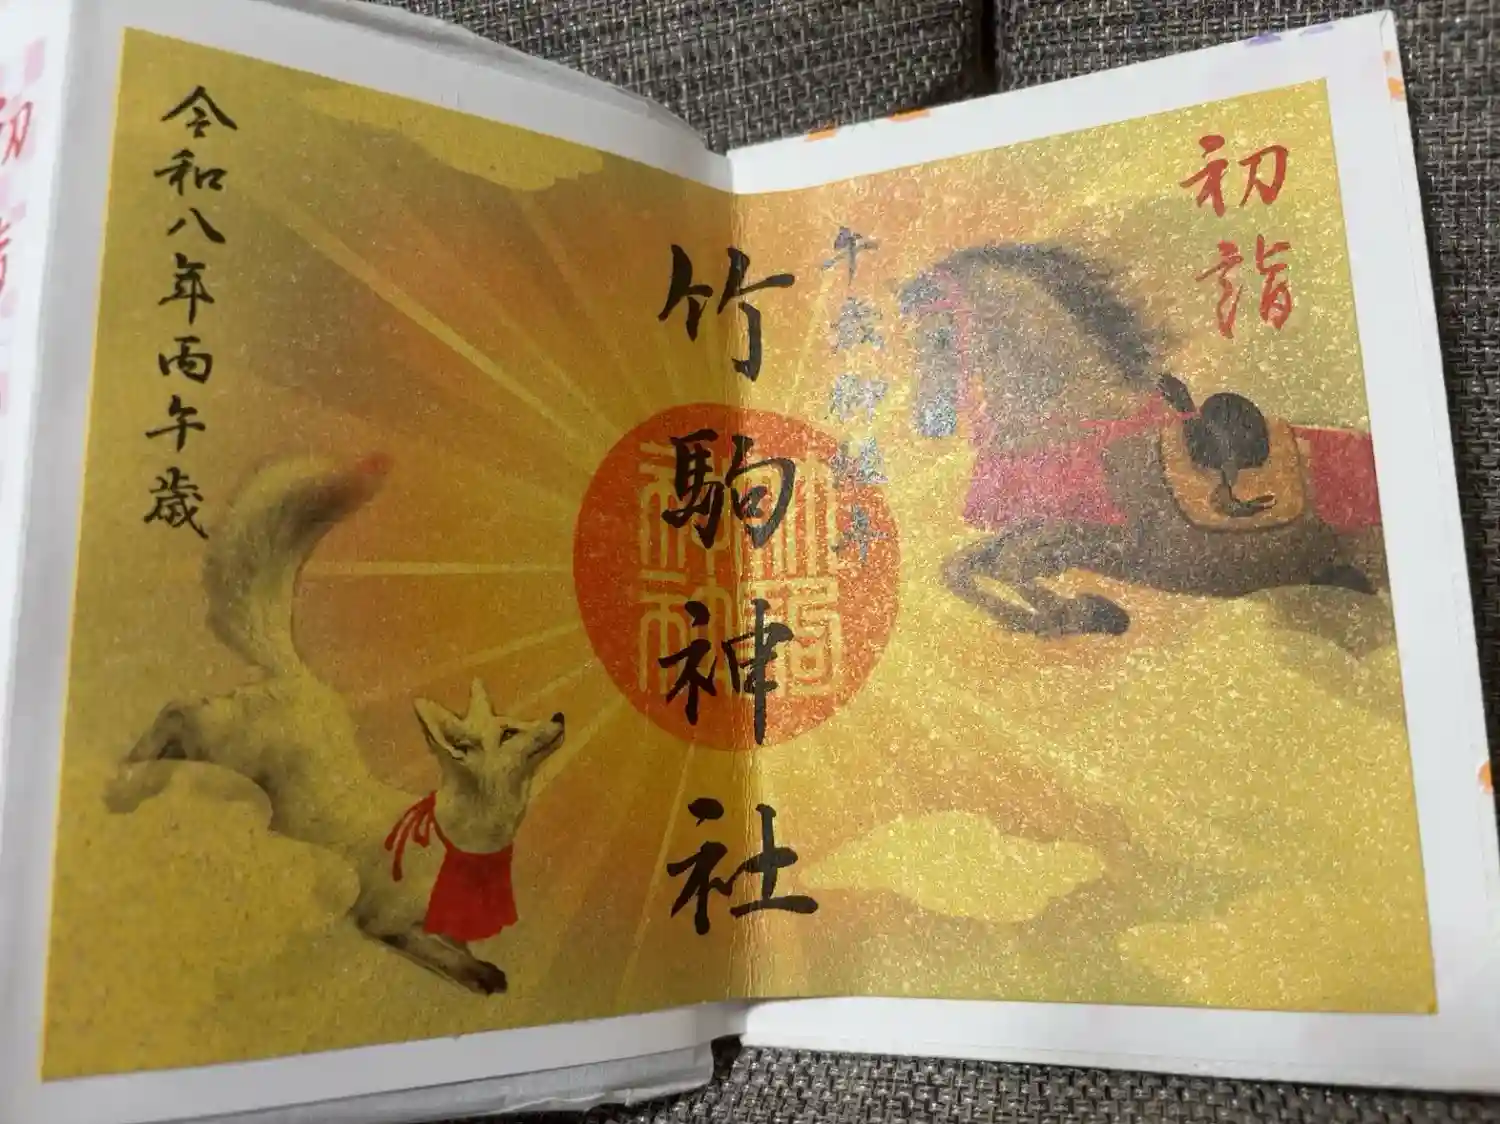 初詣
午歳御縁年
竹駒神社
竹駒
神社
令和八年丙午歳